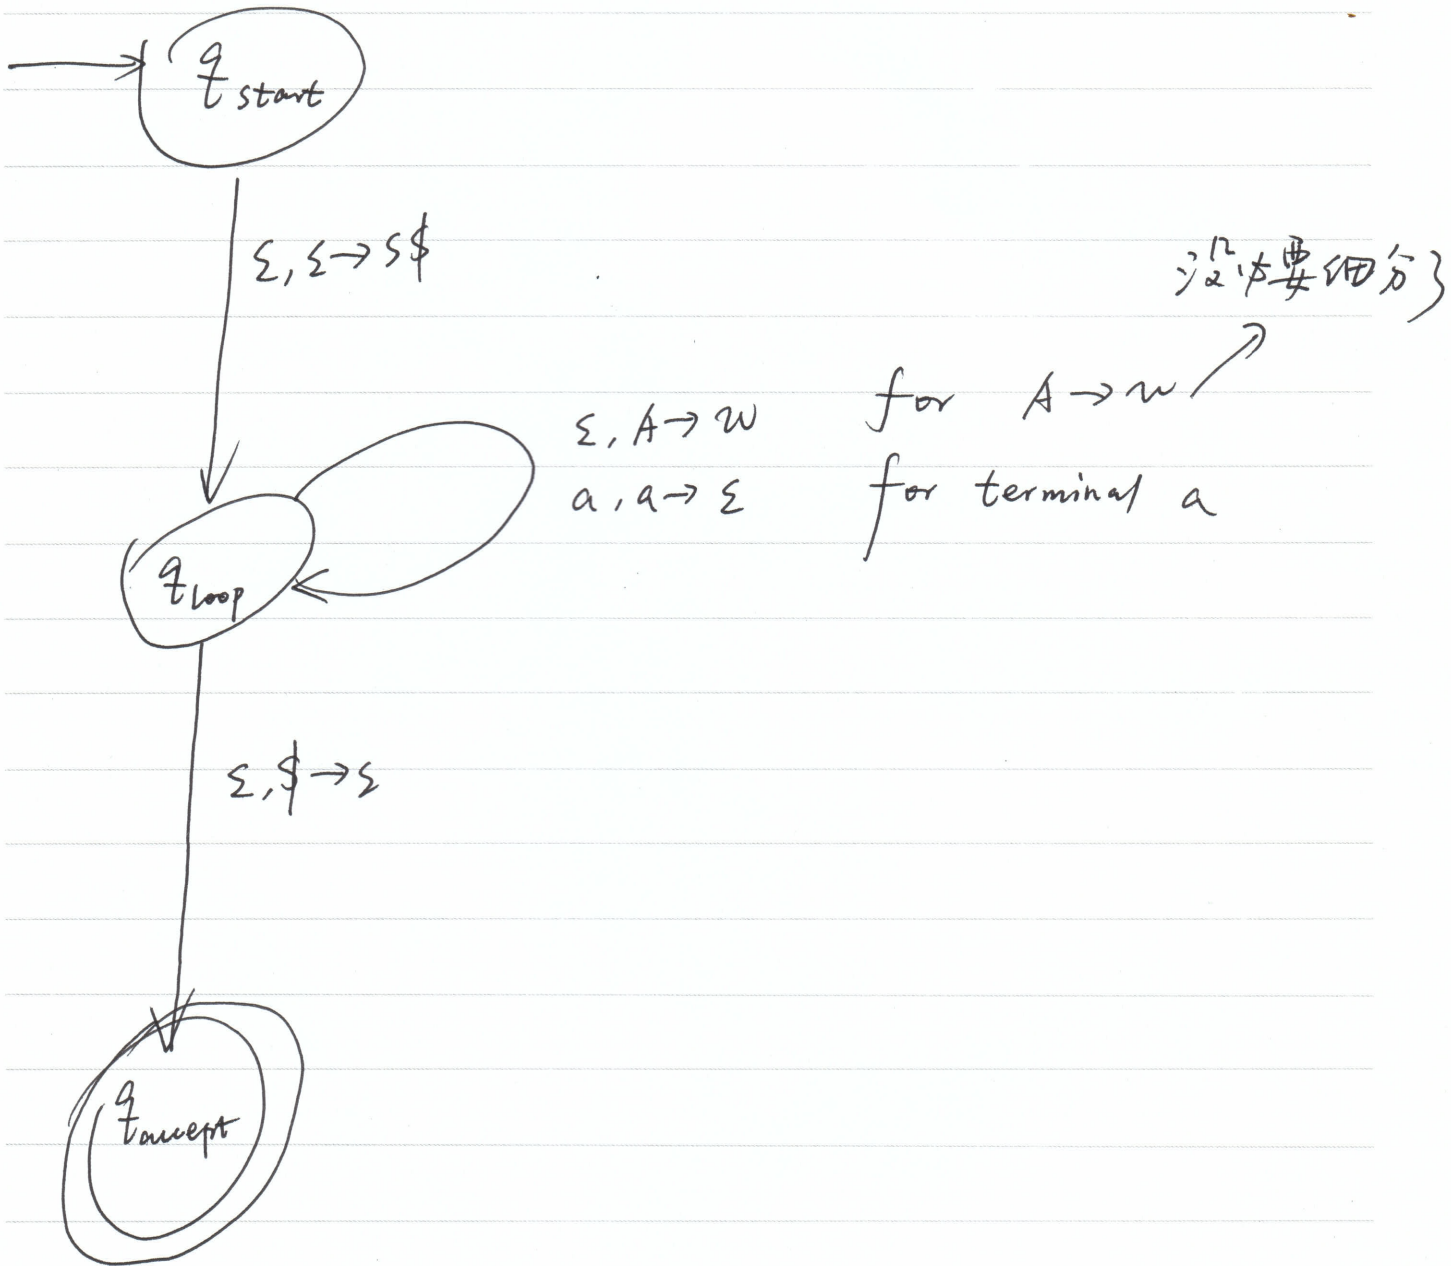 q start
ε, ε→S$
没必要细分了
ε, A→w for A→w
a, a→ε for terminal a
q loop
ε, $→ε
q accept